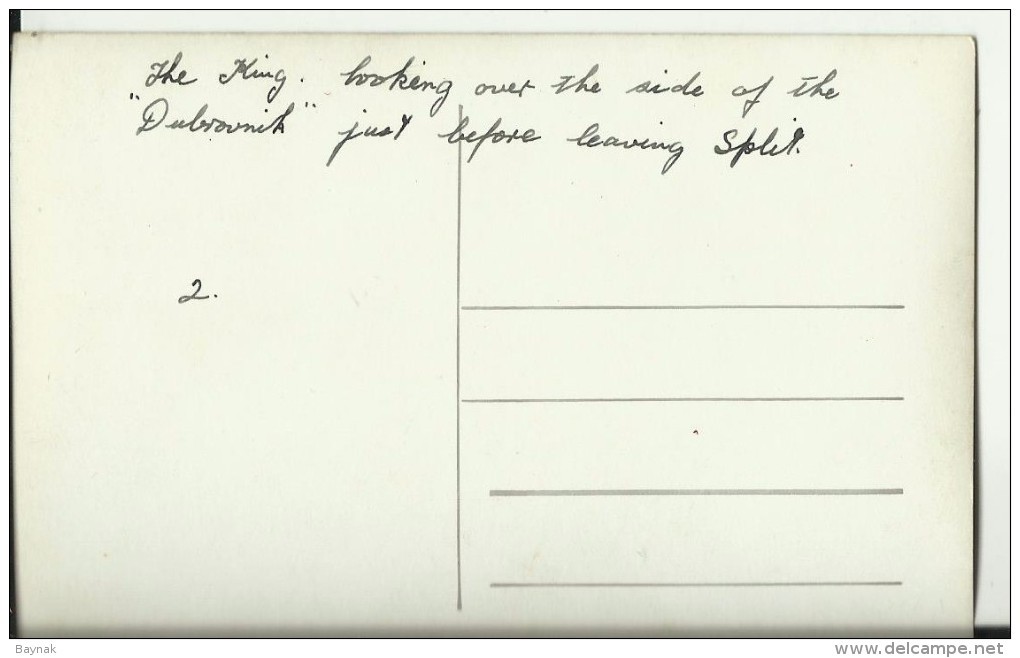 The King. looking over the side of the
"Dubrovnik" just before leaving Split.
2.
Baynak
www.delcampe.net